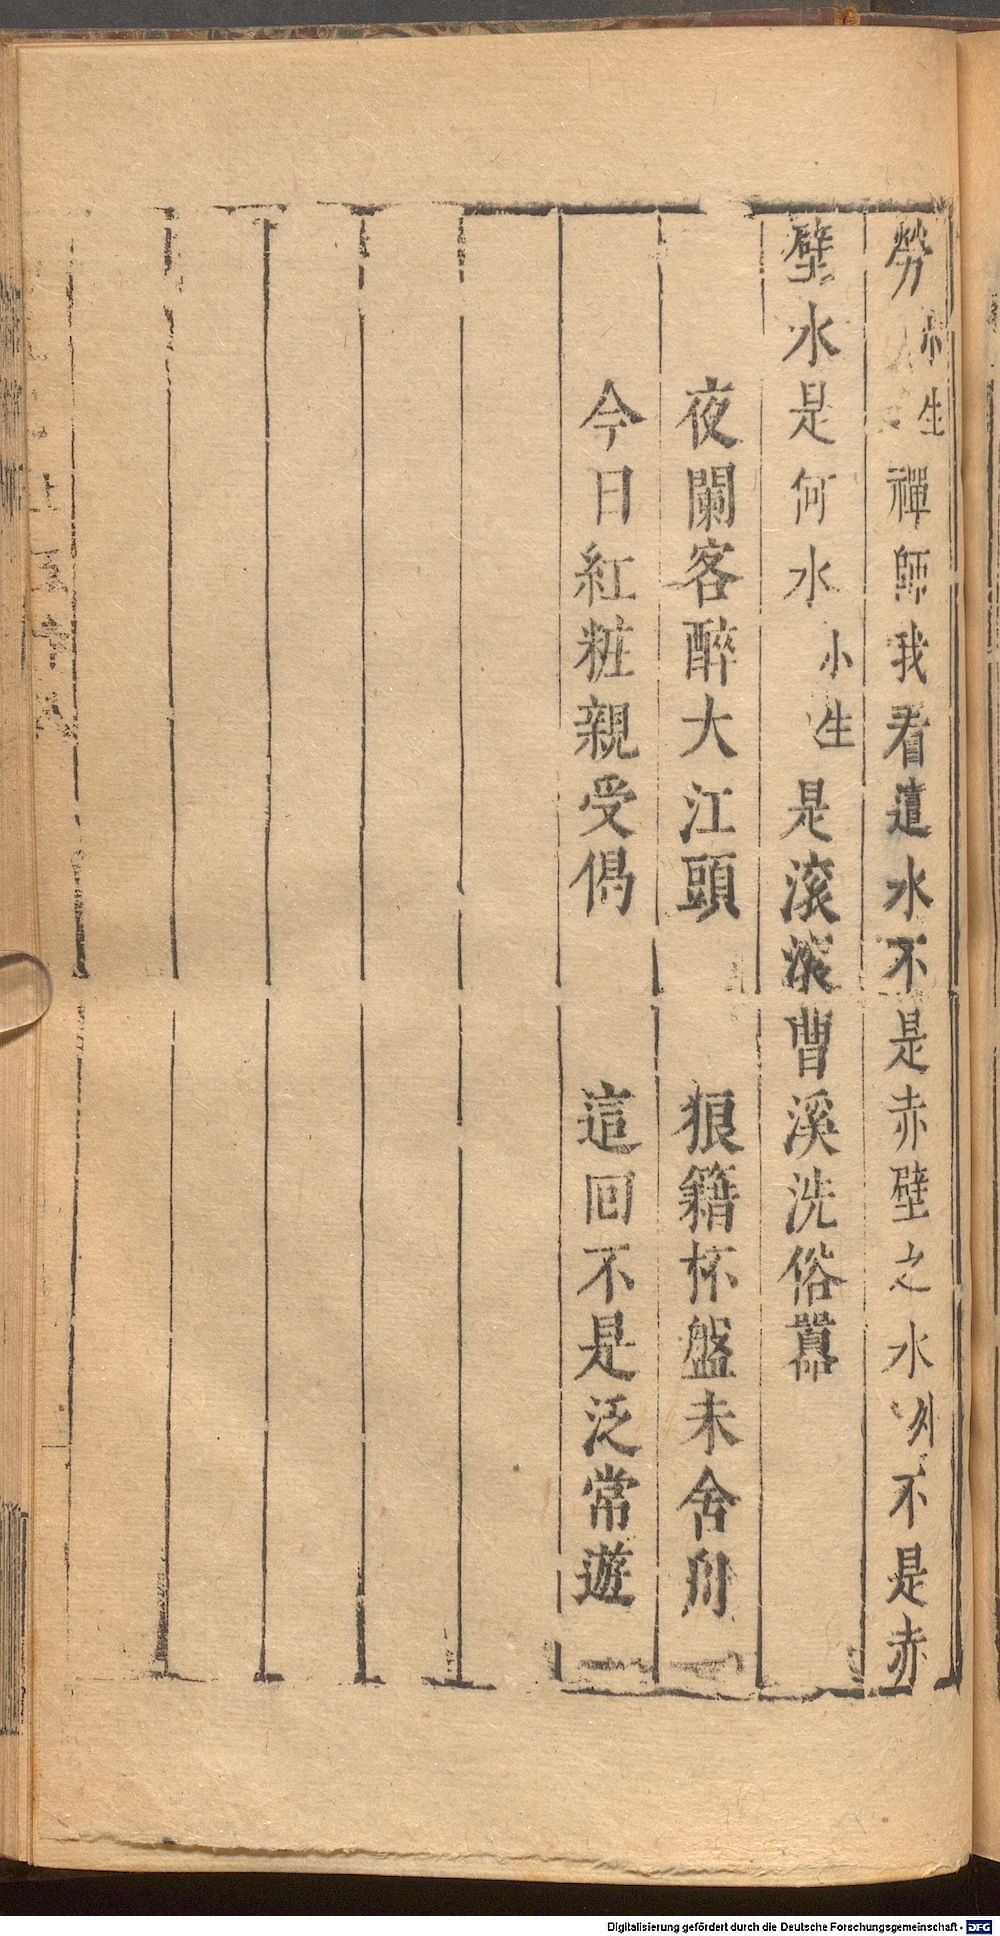 勞小生禪師我看這水不是赤壁之水外不是赤
壁水是何水小生是滾滾曹溪洗俗囂
夜闌客醉大江頭 狼籍杯盤未舍舟
今日紅粧親受偈 這回不是泛常遊
Digitalisierung gefördert durch die Deutsche Forschungsgemeinschaft - DFG